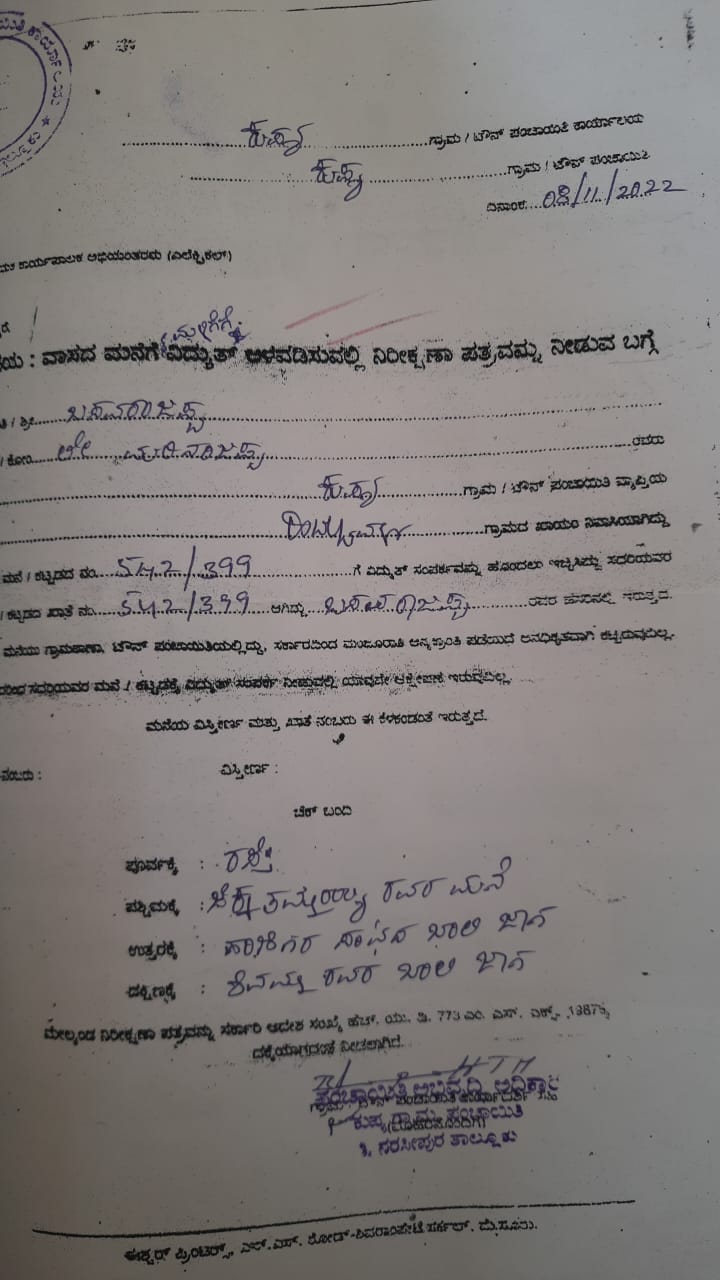 ಕುಪ್ಯ ಗ್ರಾಮ / ಟೌನ್ ಪಂಚಾಯಿತಿ ಕಾರ್ಯಾಲಯ
ಕುಪ್ಯ ಗ್ರಾಮ / ಟೌನ್ ಪಂಚಾಯಿತಿ
ದಿನಾಂಕ: 08/11/2022
ಕಾರ್ಯಪಾಲಕ ಅಭಿಯಂತರರು (ಎಲೆಕ್ಟ್ರಿಕಲ್)
: ವಾಸದ ಮನೆಗೆ ವಿದ್ಯುತ್ ಅಳವಡಿಸುವಲ್ಲಿ ನಿರೀಕ್ಷಣಾ ಪತ್ರವನ್ನು ನೀಡುವ ಬಗ್ಗೆ
/ ಶ್ರೀ ಬಸವರಾಜಪ್ಪ
/ ಕೋಂ ಲೇ ರವರು
ಕುಪ್ಯ ಗ್ರಾಮ / ಟೌನ್ ಪಂಚಾಯಿತಿ ವ್ಯಾಪ್ತಿಯ
ಗ್ರಾಮದ ಖಾಯಂ ನಿವಾಸಿಯಾಗಿದ್ದು
ಮನೆ / ಕಟ್ಟಡದ ನಂ. 542/399 ಗೆ ವಿದ್ಯುತ್ ಸಂಪರ್ಕವನ್ನು ಹೊಂದಲು ಇಚ್ಛಿಸಿದ್ದು ಸದರಿಯವರ
/ ಕಟ್ಟಡದ ಖಾತೆ ನಂ. 542/399 ಆಗಿದ್ದು ಬಸವರಾಜಪ್ಪ ರವರ ಹೆಸರಿನಲ್ಲಿ ಇರುತ್ತದೆ.
ಮನೆಯು ಗ್ರಾಮಠಾಣಾ, ಟೌನ್ ಪಂಚಾಯಿತಿಯಲ್ಲಿದ್ದು, ಸರ್ಕಾರದಿಂದ ಮಂಜೂರಾತಿ ಪಡೆಯದೆ ಅನಧಿಕೃತವಾಗಿ ಕಟ್ಟಿರುವುದಿಲ್ಲ.
ಸದರಿಯವರ ಮನೆ / ಕಟ್ಟಡಕ್ಕೆ ವಿದ್ಯುತ್ ಸಂಪರ್ಕ ನೀಡುವಲ್ಲಿ ಯಾವುದೇ ಆಕ್ಷೇಪಣೆ ಇರುವುದಿಲ್ಲ.
ಮನೆಯ ವಿಸ್ತೀರ್ಣ ಮತ್ತು ಖಾತೆ ನಂಬರು ಈ ಕೆಳಕಂಡಂತೆ ಇರುತ್ತದೆ.
ನಂಬರು : ವಿಸ್ತೀರ್ಣ :
ಚೆಕ್ ಬಂದಿ
ಪೂರ್ವಕ್ಕೆ : ರಸ್ತೆ
ಪಶ್ಚಿಮಕ್ಕೆ : ರವರ ಮನೆ
ಉತ್ತರಕ್ಕೆ : ಖಾಲಿ ಜಾಗ
ದಕ್ಷಿಣಕ್ಕೆ : ಶಿವಮ್ಮ ರವರ ಖಾಲಿ ಜಾಗ
ಮೇಲ್ಕಂಡ ನಿರೀಕ್ಷಣಾ ಪತ್ರವನ್ನು ಸರ್ಕಾರಿ ಆದೇಶ ಸಂಖ್ಯೆ ಹೆಚ್. ಯು. ಡಿ. 773 ಎಂ. ಎಸ್. ಎಕ್ಸ್. 1987ಕ್ಕೆ
ನೀಡಲಾಗಿದೆ.
ಪಂಚಾಯಿತಿ ಅಭಿವೃದ್ಧಿ ಅಧಿಕಾರಿ
ಕುಪ್ಯ ಗ್ರಾಮ ಪಂಚಾಯಿತಿ
ತಿ. ನರಸೀಪುರ ತಾಲ್ಲೂಕು
ಈಶ್ವರ್ ಪ್ರಿಂಟರ್ಸ್, ಎನ್.ಎಸ್. ರೋಡ್-ಶಿವರಾಂಪೇಟೆ ಸರ್ಕಲ್, ಮೈಸೂರು.